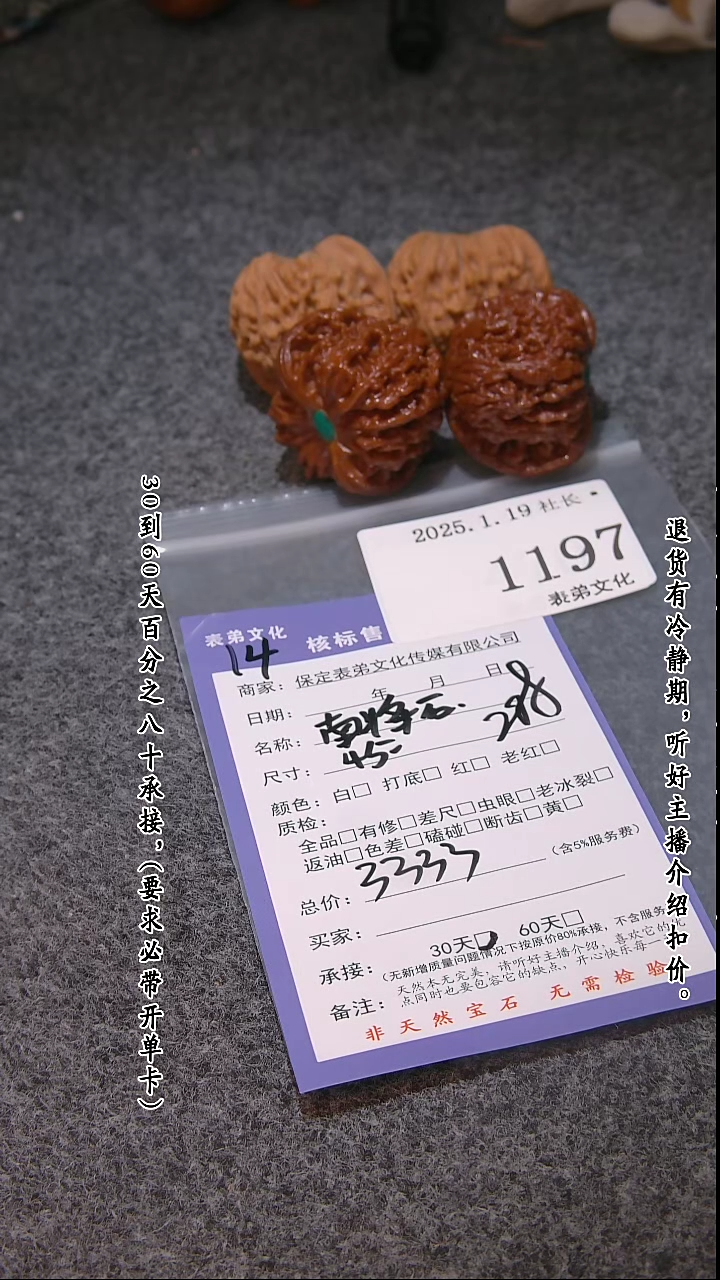 2025.1.19 社长
1197
表弟文化
表弟文化 核标售
14
商家：保定表弟文化传媒有限公司
日期： 年 月 日
名称：南将石. 298
尺寸：45-
颜色：白□ 打底□ 红□ 老红□
质检：
全品□有修□差尺□虫眼□老冰裂□
返油□色差□磕碰□断齿□黄□
总价：3333 （含5%服务费）
买家：
30天□ 60天□
承接：（无新增质量问题情况下按原价80%承接，不含服务
备注：天然木无完美，请听好主播介绍，喜欢它的优
点同时也要包容它的缺点，开心快乐每一
非天然宝石 无需检验
30到60天百分之八十承接，（要求必带开单卡）
退货有冷静期，听好主播介绍扣价。